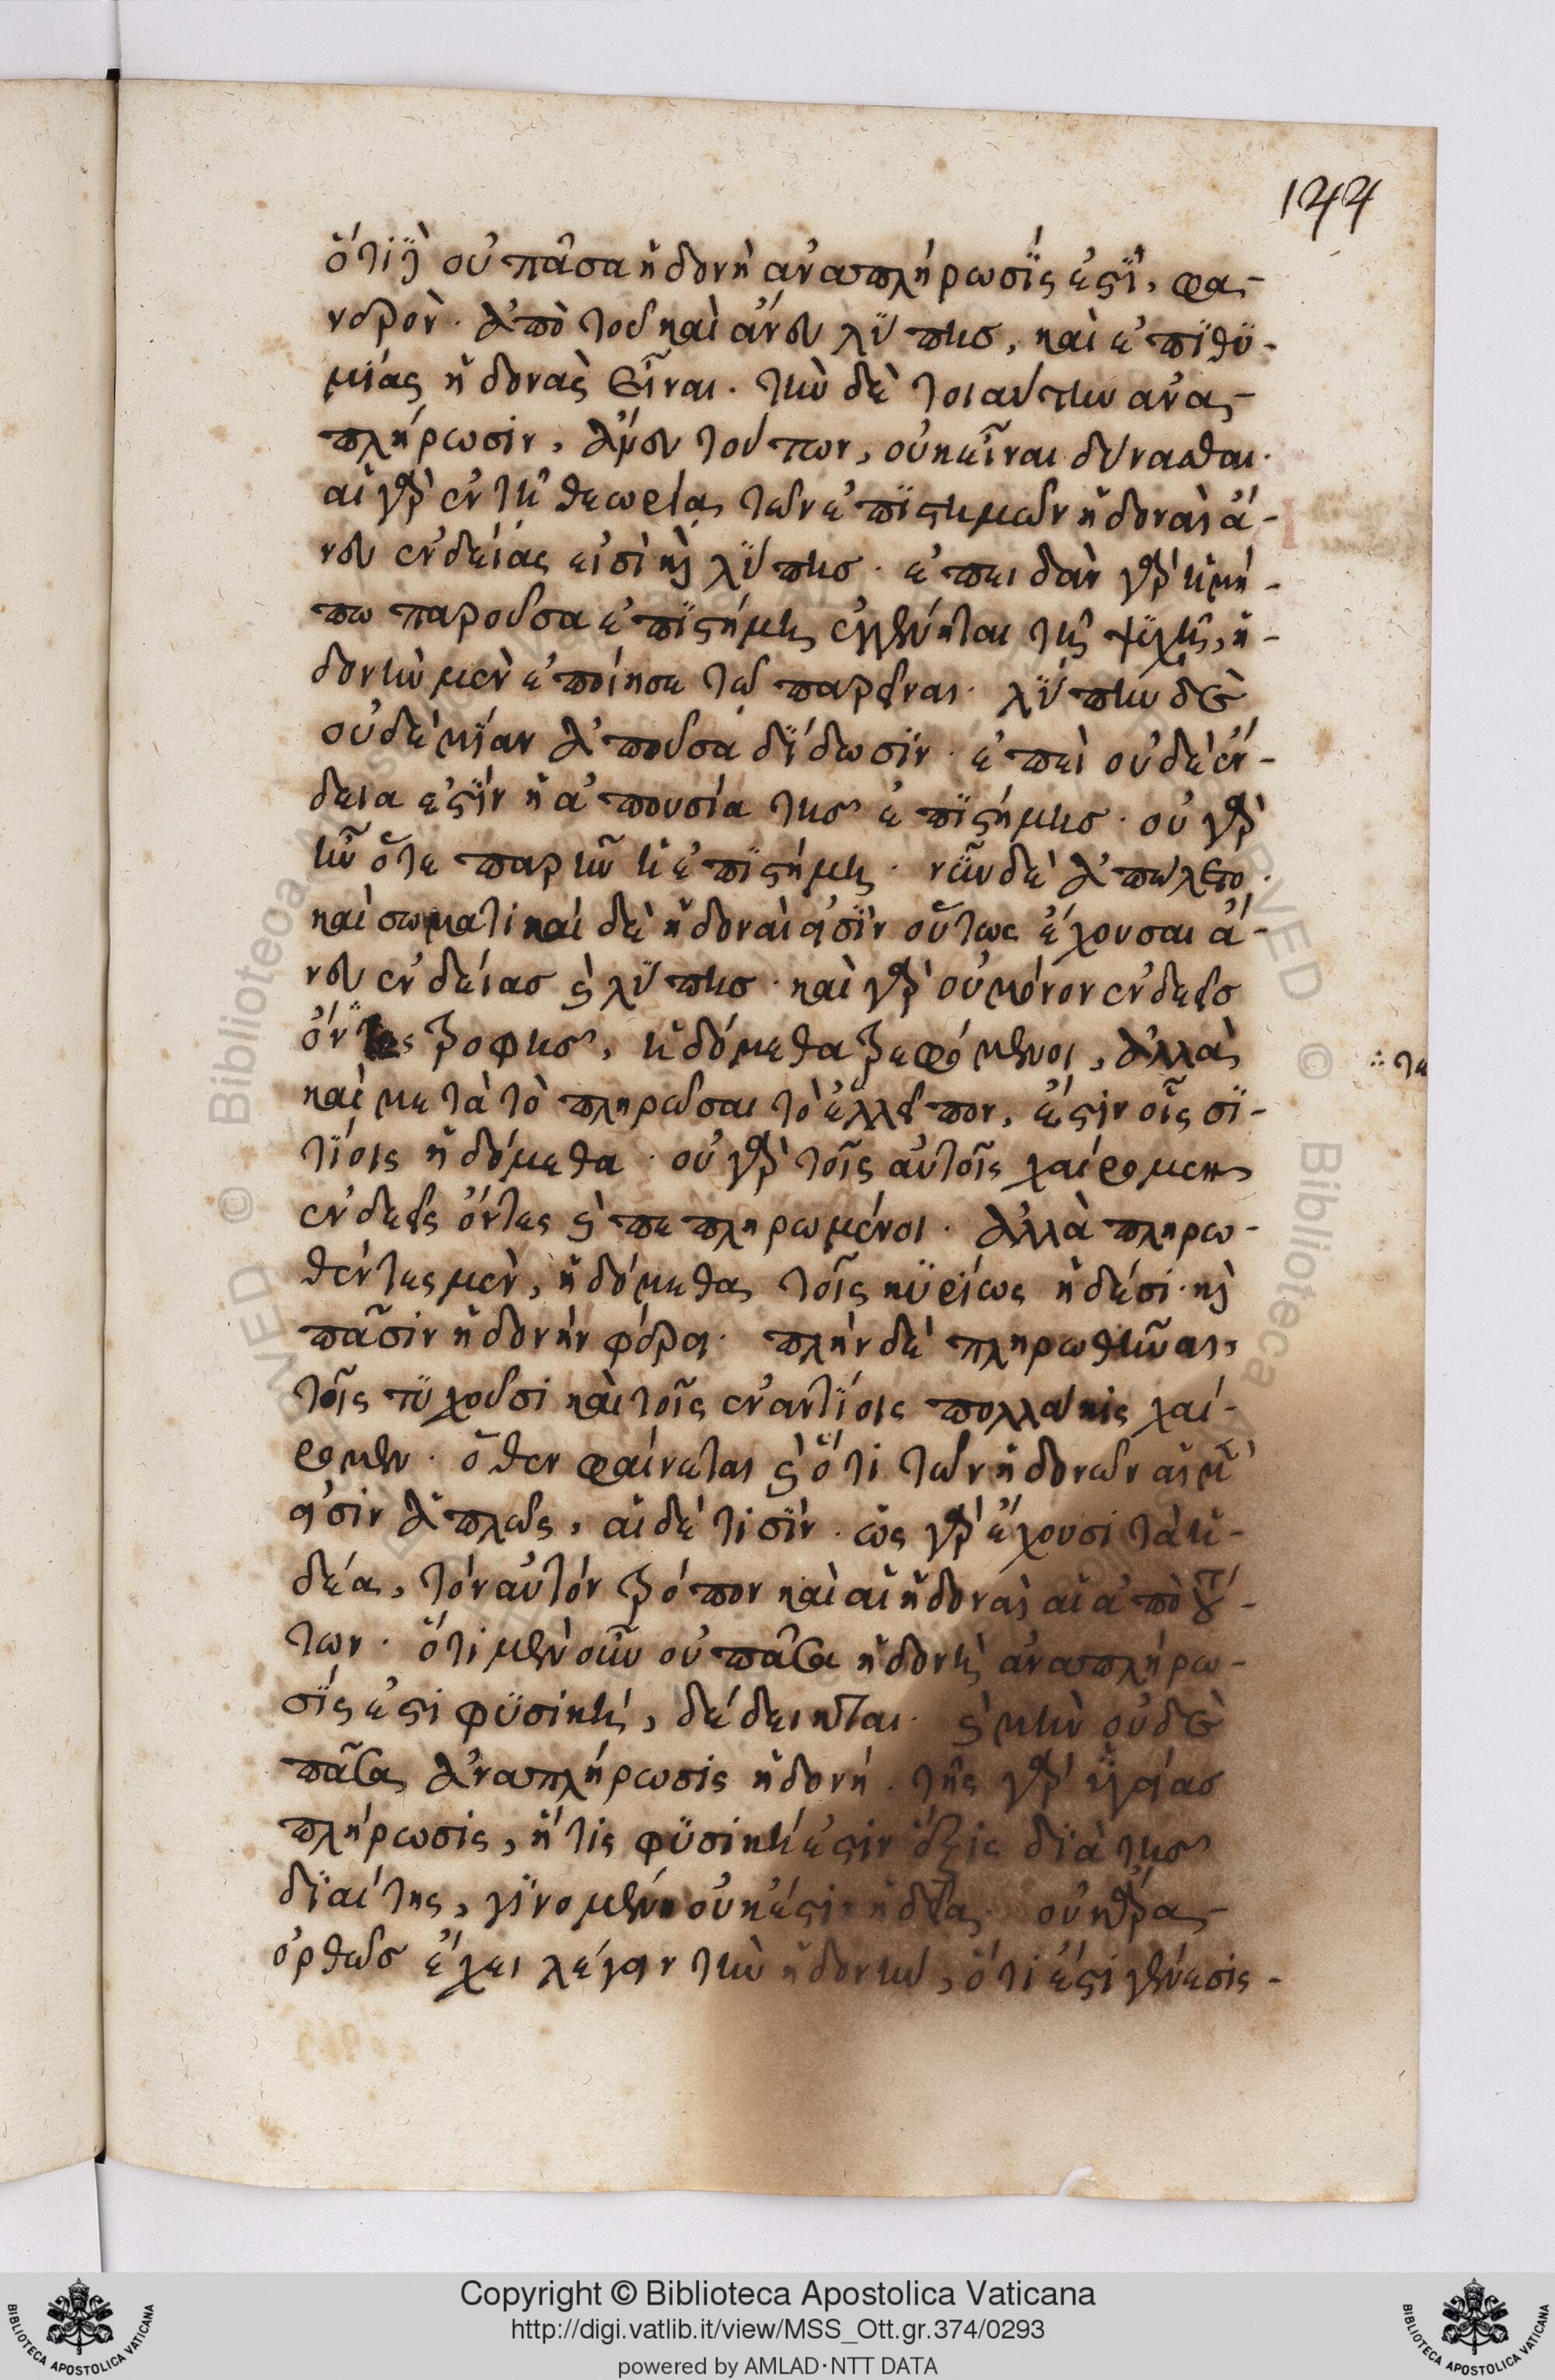 144
ὅτι δὲ οὐ πᾶσα ἡδονὴ ἀναπλήρωσίς ἐστι, φα-
νερὸν. ἀπὸ τοῦ καὶ ἄνευ λύπης, καὶ ἐπιθυ-
μίας ἡδονὰς εἶναι. τὴν δὲ τοιαύτην ἀνα-
πλήρωσιν, ἄνευ τούτων, οὐκ εἶναι δύνασθαι.
αἱ γὰρ ἐν τῇ θεωρίᾳ τῶν ἐπιστημῶν ἡδοναὶ ἄ-
νευ ἐνδείας εἰσὶ καὶ λύπης. ἐπειδὰν γὰρ ἡ μή-
πω παροῦσα ἐπιστήμη ἐγγένηται τῇ ψυχῇ, ἡ-
δονὴν μὲν ἐποίησε τῷ παρεῖναι. λύπην δὲ
οὐδεμίαν ἀποῦσα δίδωσιν. ἐπεὶ οὐδὲ ἔν-
δεια ἐστὶν ἡ ἀπουσία τῆς ἐπιστήμης. οὐ γὰρ
ἦν ὅτε παρῆν ἡ ἐπιστήμη. νῦν δὲ ἀπώλετο.
καὶ σωματικαὶ δὲ ἡδοναὶ εἰσὶν οὕτως ἔχουσαι ἄ-
νευ ἐνδείας καὶ λύπης. καὶ γὰρ οὐ μόνον ἐνδεεῖς
ὄντες τροφῆς, ἡδόμεθα τρεφόμενοι, ἀλλὰ
∴ τε
καὶ μετὰ τὸ πληρῶσαι τὸ ἐλλεῖπον, ἔστιν οἷς σι-
τίοις ἡδόμεθα. οὐ γὰρ τοῖς αὐτοῖς χαίρομεν
ἐνδεεῖς ὄντες καὶ πεπληρωμένοι. ἀλλὰ πληρω-
θέντες μὲν, ἡδόμεθα τοῖς κυρίως ἡδέσι. καὶ
πᾶσιν ἡδονὴν φέρει. πλὴν δὲ πληρωθῆναι,
τοῖς τυχοῦσι καὶ τοῖς ἐναντίοις πολλάκις χαί-
ρομεν. ὅθεν φαίνεται καὶ ὅτι τῶν ἡδονῶν αἱ μὲν
εἰσιν ἁπλῶς, αἱ δέ τισιν. ὡς γὰρ ἔχουσι τὰ ἡ-
δέα, τὸν αὐτὸν τρόπον καὶ αἱ ἡδοναὶ αἱ ἀπὸ τού-
των. ὅτι μὲν οὖν οὐ πᾶσα ἡδονὴ ἀναπλήρω-
σίς ἐστι φυσικὴ, δέδεικται. καὶ μὴν οὐδὲ
πᾶσα ἀναπλήρωσις ἡδονή. τῆς γὰρ ὑγείας
πλήρωσις, ἥτις φυσική ἐστιν ἕξις διὰ τῆς
διαίτης, γινομένη οὐκ ἔστιν ἡδεῖα. οὐκ ἄρα
ὀρθῶς ἔχει λέγειν τὴν ἡδονὴν, ὅτι ἐστι γένεσις-
Copyright © Biblioteca Apostolica Vaticana
http://digi.vatlib.it/view/MSS_Ott.gr.374/0293
powered by AMLAD·NTT DATA
BIBLIOTECA APOSTOLICA VATICANA
BIBLIOTECA APOSTOLICA VATICANA